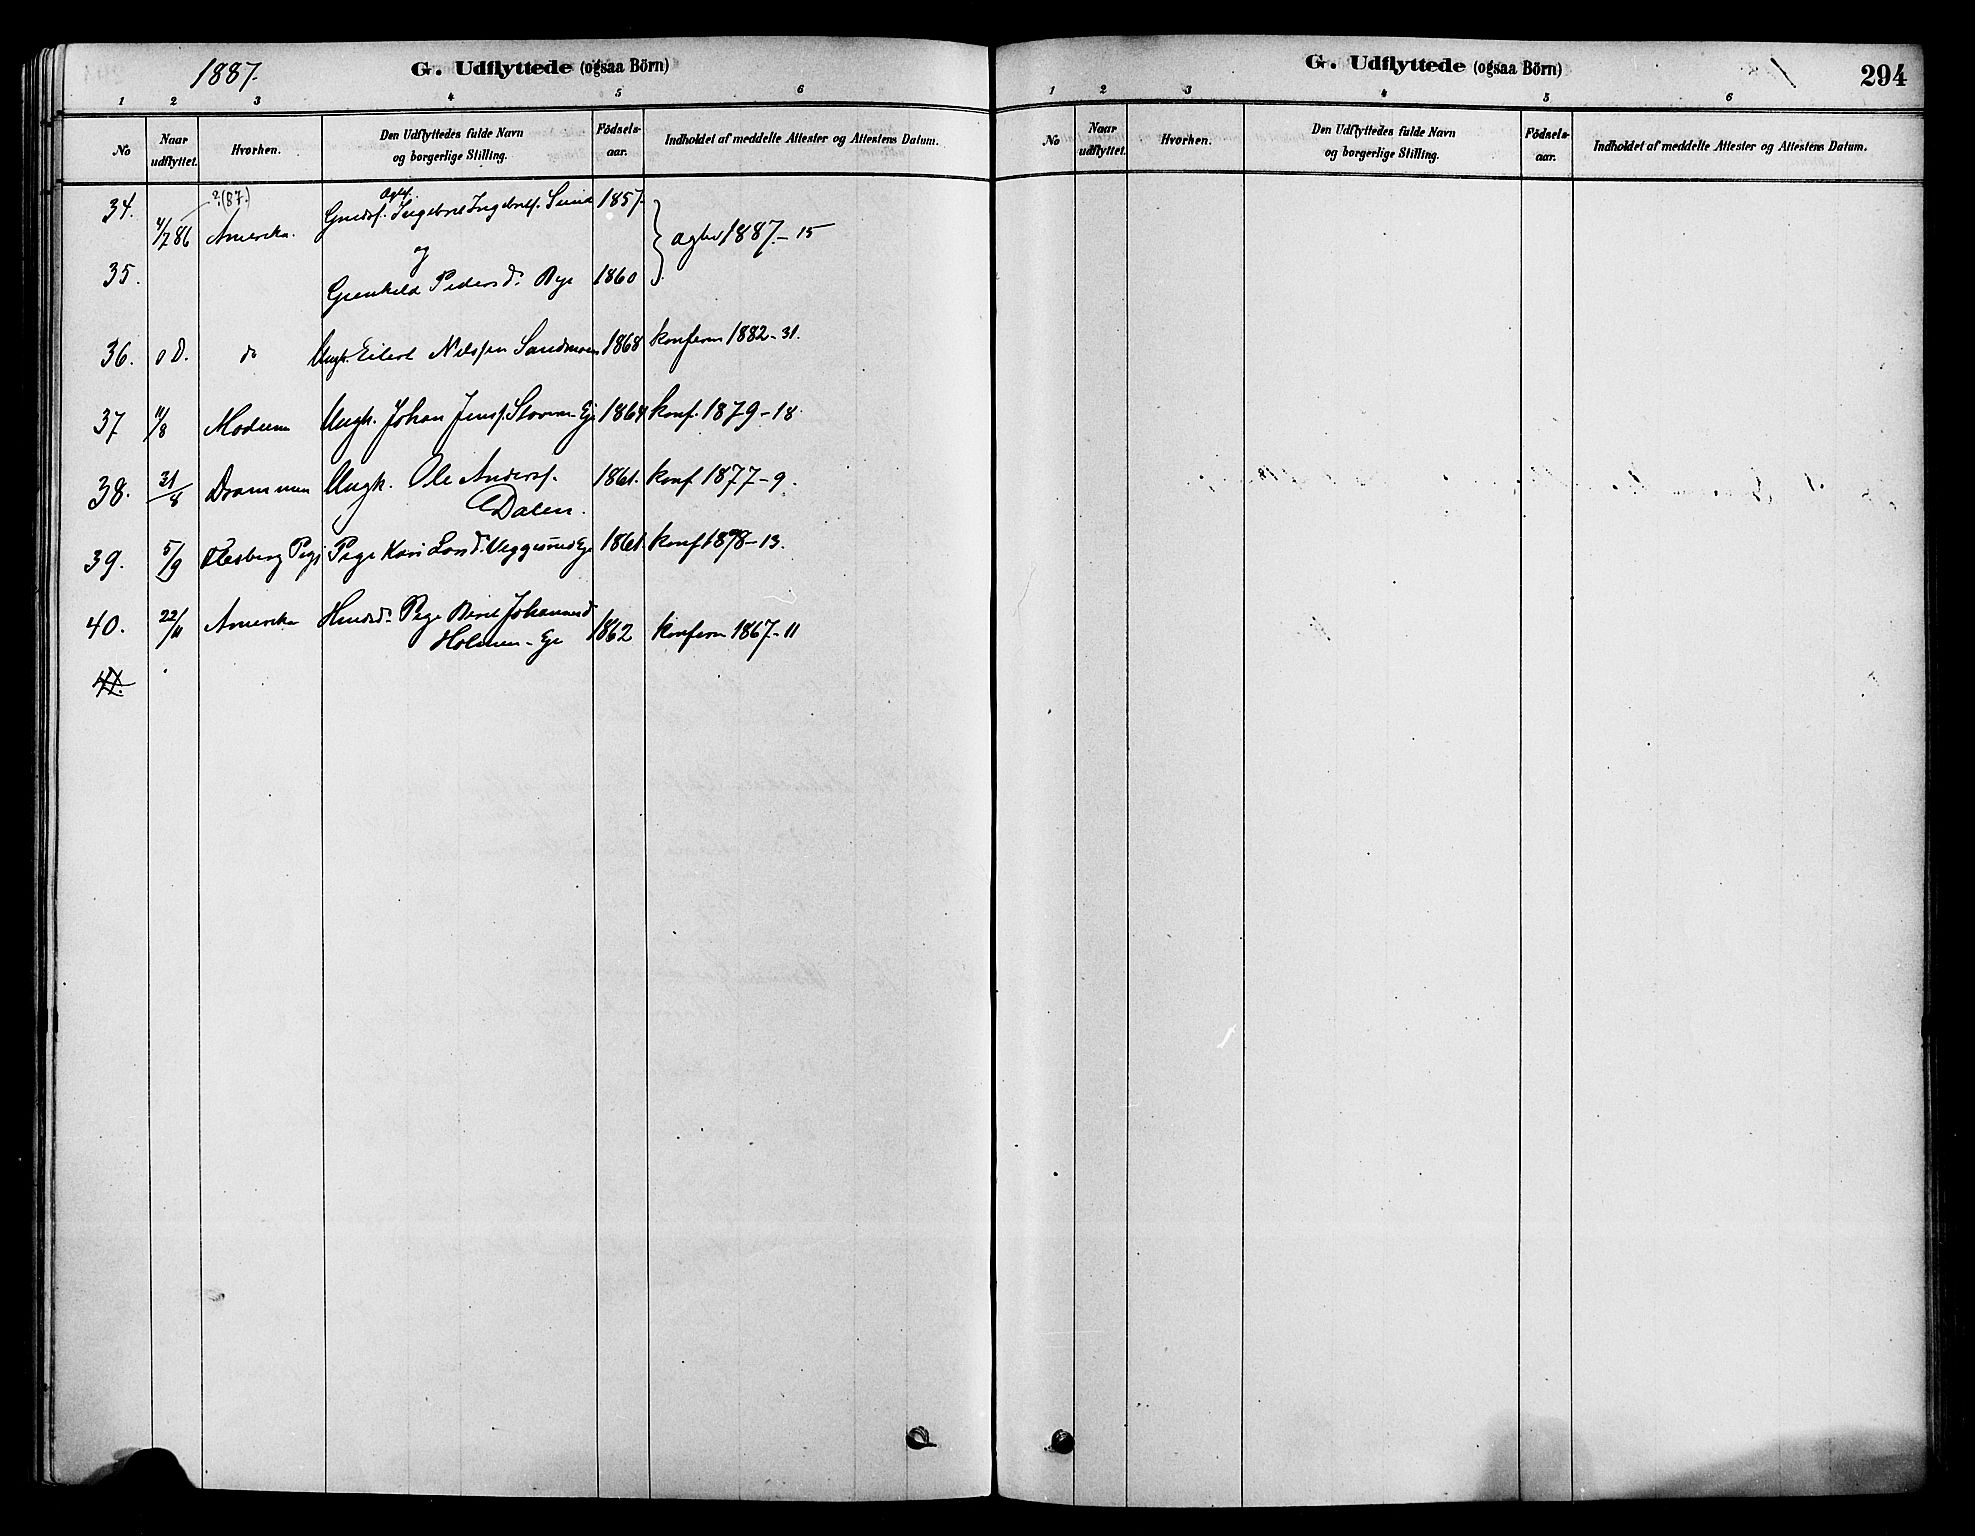 1887.
G. Udflyttede (ogsaa Börn)
1 2 3 4 5 6
No
Naar udflyttet.
Hvorhen.
Den Udflyttedes fulde Navn
og borgerlige Stilling.
Födsels-
aar.
Indholdet af meddelte Attester og Attestens Datum.
34. ?(87.) 1857.
/7 86 Amerika. agtev 1887-15
og
35. Pedersd. Bye 1860
36. do. do Ungk. Eilert Nilssen Sandmoen 1868 konferm 1882-31.
37 11/8 Modum Ungk. Johan Jensf. Eje 1864 konf. 1879-18.
38. 31/8 Drammen Ungk. Ole Andersf. 1861. konf 1877-9.
Dalen.
39. 5/9 Flesberg Pgj Pige Kari Eje 1861 konf 1878-13.
40. 22/11 Amerika Pige Berit Johannesd
Holmen-Eje 1862 konferm 1867-11
41.
G. Udflyttede (ogsaa Börn)
294
1 2 3 4 5 6
No
Naar
udflyttet.
Hvorhen.
Den Udflyttedes fulde Navn
og borgerlige Stilling.
Födsels-
aar.
Indholdet af meddelte Attester og Attestens Datum.